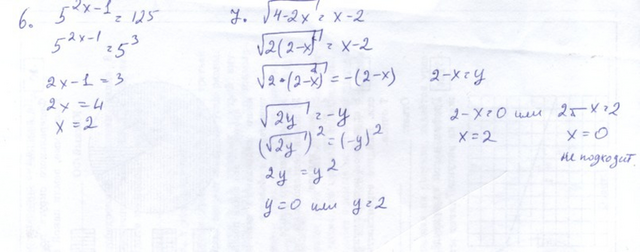 6. 5^(2x-1) = 125
5^(2x-1) = 5^3
2x-1 = 3
2x = 4
x = 2
7. √(4-2x) = x-2
√(2(2-x)) = x-2
√(2*(2-x)) = -(2-x) 2-x=y
√(2y) = -y
(√(2y))^2 = (-y)^2
2y = y^2
y=0 или y=2
2-x=0 или 2-x=2
x=2 x=0
не подходит.